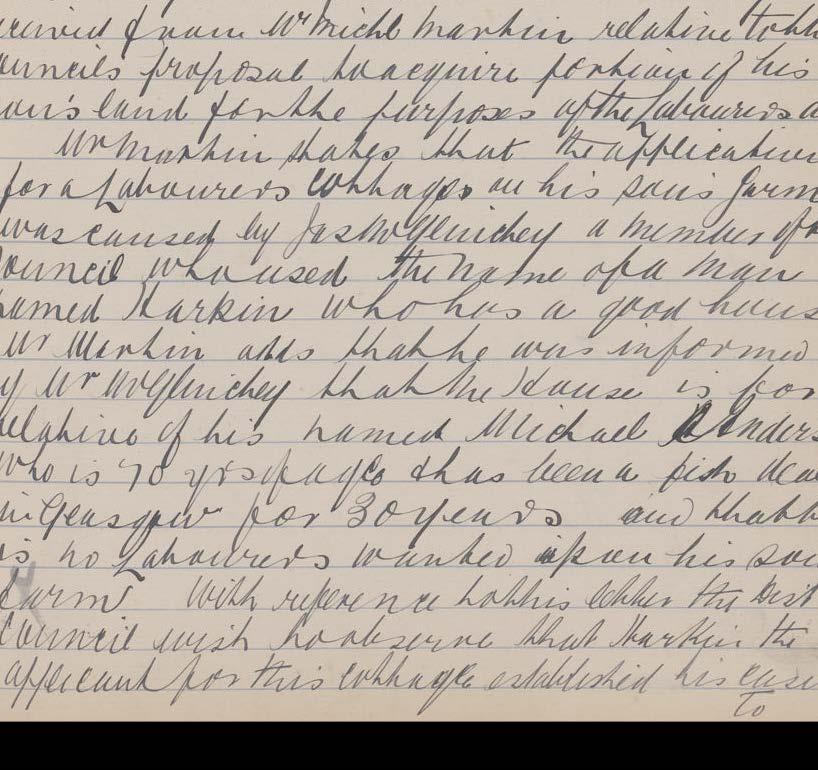 received from Mr Michl Martin relative to th
ouncils proposal to acquire portion of his
son's land for the purposes of the Labourers a
Mr Martin states that the application
for a Labourers Cottages on his sons farm
was caused by Jas McGlinchey a member of
Council who used the name of a man
named Harkin who has a good hous
Mr Martin adds that he was informed
y Mr McGlinchey that the House is for
relative of his named Michael
who is 70 yrs of age & has been a fish dea
in Glasgow for 30 years and that th
is no Labourers wanted upon his son
farm With reference to this letter the Dist
Council wish to observe that Harkin the
applicant for this cottage established his case
To